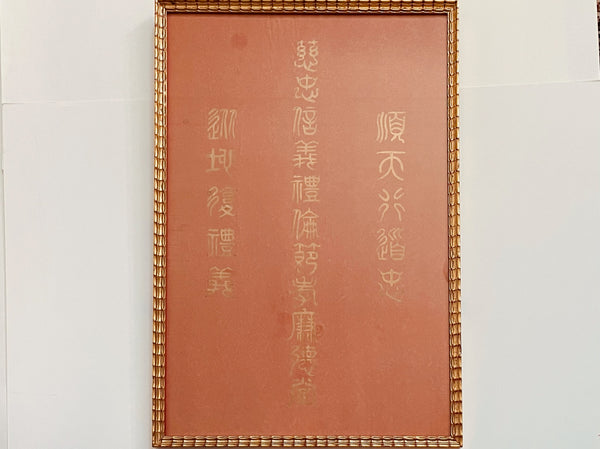 順天行道忠
慈忠信義禮倫節孝廉德堂
地復禮義